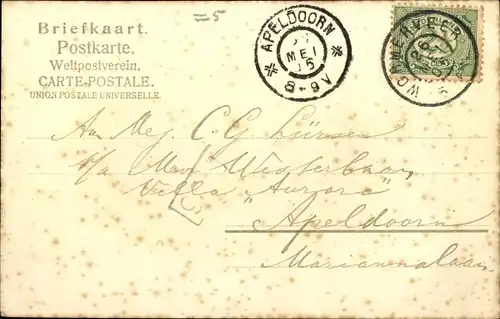 =5
Briefkaart.
Postkarte.
Weltpostverein.
CARTE-POSTALE.
UNION POSTALE UNIVERSELLE.
APELDOORN
MEI
8-9V
WORMERVEER
Aan Mej. C. G. Lürsen
p/a Mevr Westerbaan
Villa "Aurora"
Apeldoorn
Mariannalaan